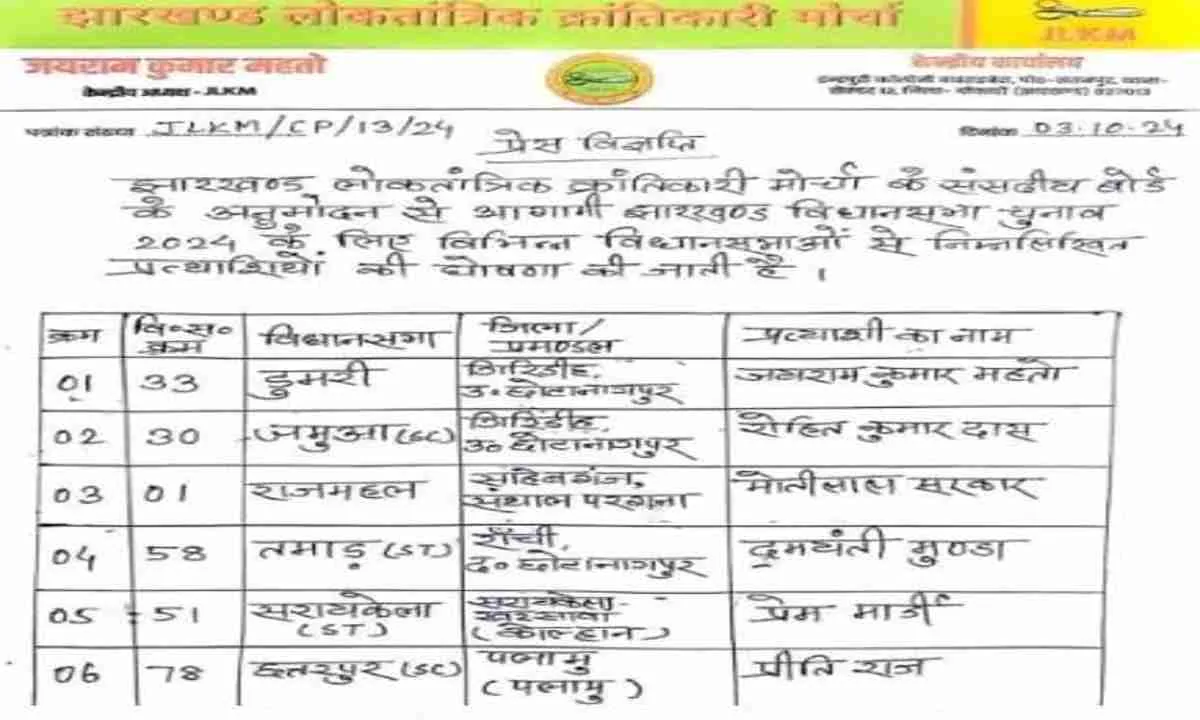 झारखण्ड लोकतांत्रिक क्रांतिकारी मोर्चा
JLKM
जयराम कुमार महतो
केन्द्रीय अध्यक्ष - JLKM
केन्द्रीय कार्यालय
पत्रांक संख्या JLKM/CP/13/24
दिनांक 03.10.24
प्रेस विज्ञप्ति
झारखण्ड लोकतांत्रिक क्रांतिकारी मोर्चा के संसदीय बोर्ड
के अनुमोदन से आगामी झारखण्ड विधानसभा चुनाव
2024 के लिए विभिन्न विधानसभाओं से निम्नलिखित
प्रत्याशियों की घोषणा की जाती है ।
क्रम वि॰स॰ क्रम विधानसभा जिला/प्रमण्डल प्रत्याशी का नाम
01 33 डुमरी गिरिडीह, उ॰ छोटानागपुर जयराम कुमार महतो
02 30 जमुआ (SC) गिरिडीह, उ॰ छोटानागपुर रोहित कुमार दास
03 01 राजमहल साहिबगंज, संथाल परगना मोतीलाल सरकार
04 58 तमाड़ (ST) राँची, द॰ छोटानागपुर दमयंती मुण्डा
05 51 सरायकेला (ST) सरायकेला-खरसावां (कोल्हान) प्रेम मार्डी
06 78 छतरपुर (SC) पलामु (पलामु) प्रीति राज